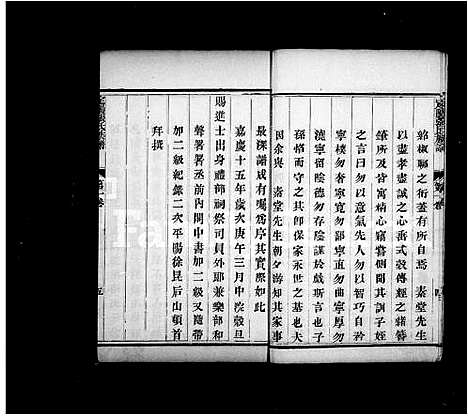 狤椒聯之衍蓋有所自焉 素堂先生
以盡孝盡誠之心垂式穀傳經之緒特
肇所及皆寓精心竊嘗側聞其訓子姪
之言曰勿以意氣先人勿以智巧自矜
寧樸勿奢寧寬勿嚴寧直勿曲寧厚勿
澆寧留陰德勿存陰謀於戲斯言也子
孫恪而守之其即保家永世之基也夫
因余與 素堂先生朝夕游知其家事
最深譜成有囑為序其實際如此
嘉慶十五年歲次庚午三月中浣穀旦
賜進士出身禮部祠祭司員外郎兼樂部和
聲署署丞前內閣中書加二級又隨帶
加二級紀錄二次平陽徐昆后山頓首
拜撰
第一卷
五